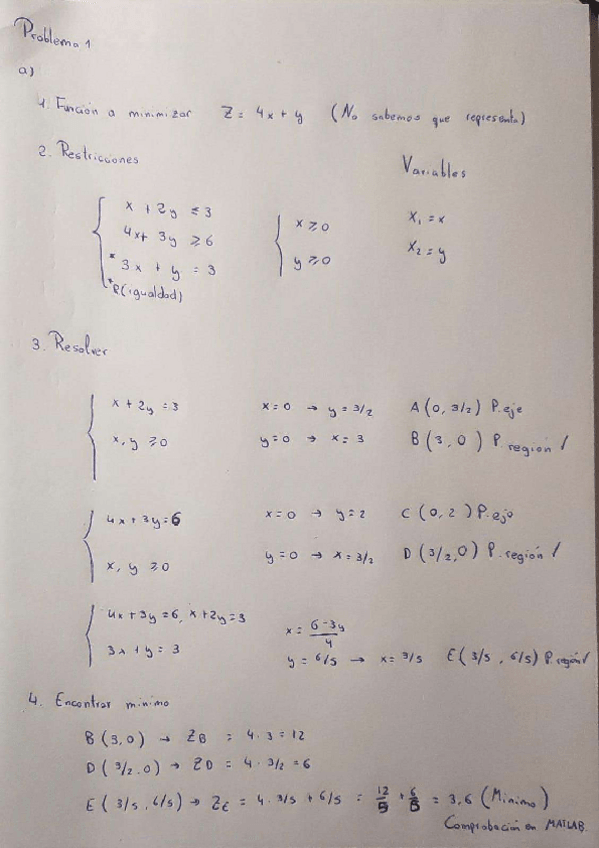 Problema 1
a)
1. Función a minimizar Z = 4x + y (No sabemos que representa)
2. Restricciones Variables
x + 2y ≤ 3 x ≥ 0 X₁ = x
4x + 3y ≥ 6 y ≥ 0 X₂ = y
* 3x + y = 3
* R(igualdad)
3. Resolver
x + 2y = 3 x = 0 → y = 3/2 A (0, 3/2) P. eje
x, y ≥ 0 y = 0 → x = 3 B (3, 0) P. región /
4x + 3y = 6 x = 0 → y = 2 C (0, 2) P. eje
x, y ≥ 0 y = 0 → x = 3/2 D (3/2, 0) P. región /
4x + 3y = 6, x + 2y = 3 x = 6-3y/4
3x + y = 3 y = 6/5 → x = 3/5 E (3/5, 6/5) P. región /
4. Encontrar minimo
B (3, 0) → Z_B = 4 · 3 = 12
D (3/2, 0) → Z_D = 4 · 3/2 = 6
E (3/5, 6/5) → Z_E = 4 · 3/5 + 6/5 = 12/5 + 6/5 = 3,6 (Minimo)
Comprobación en MATLAB.